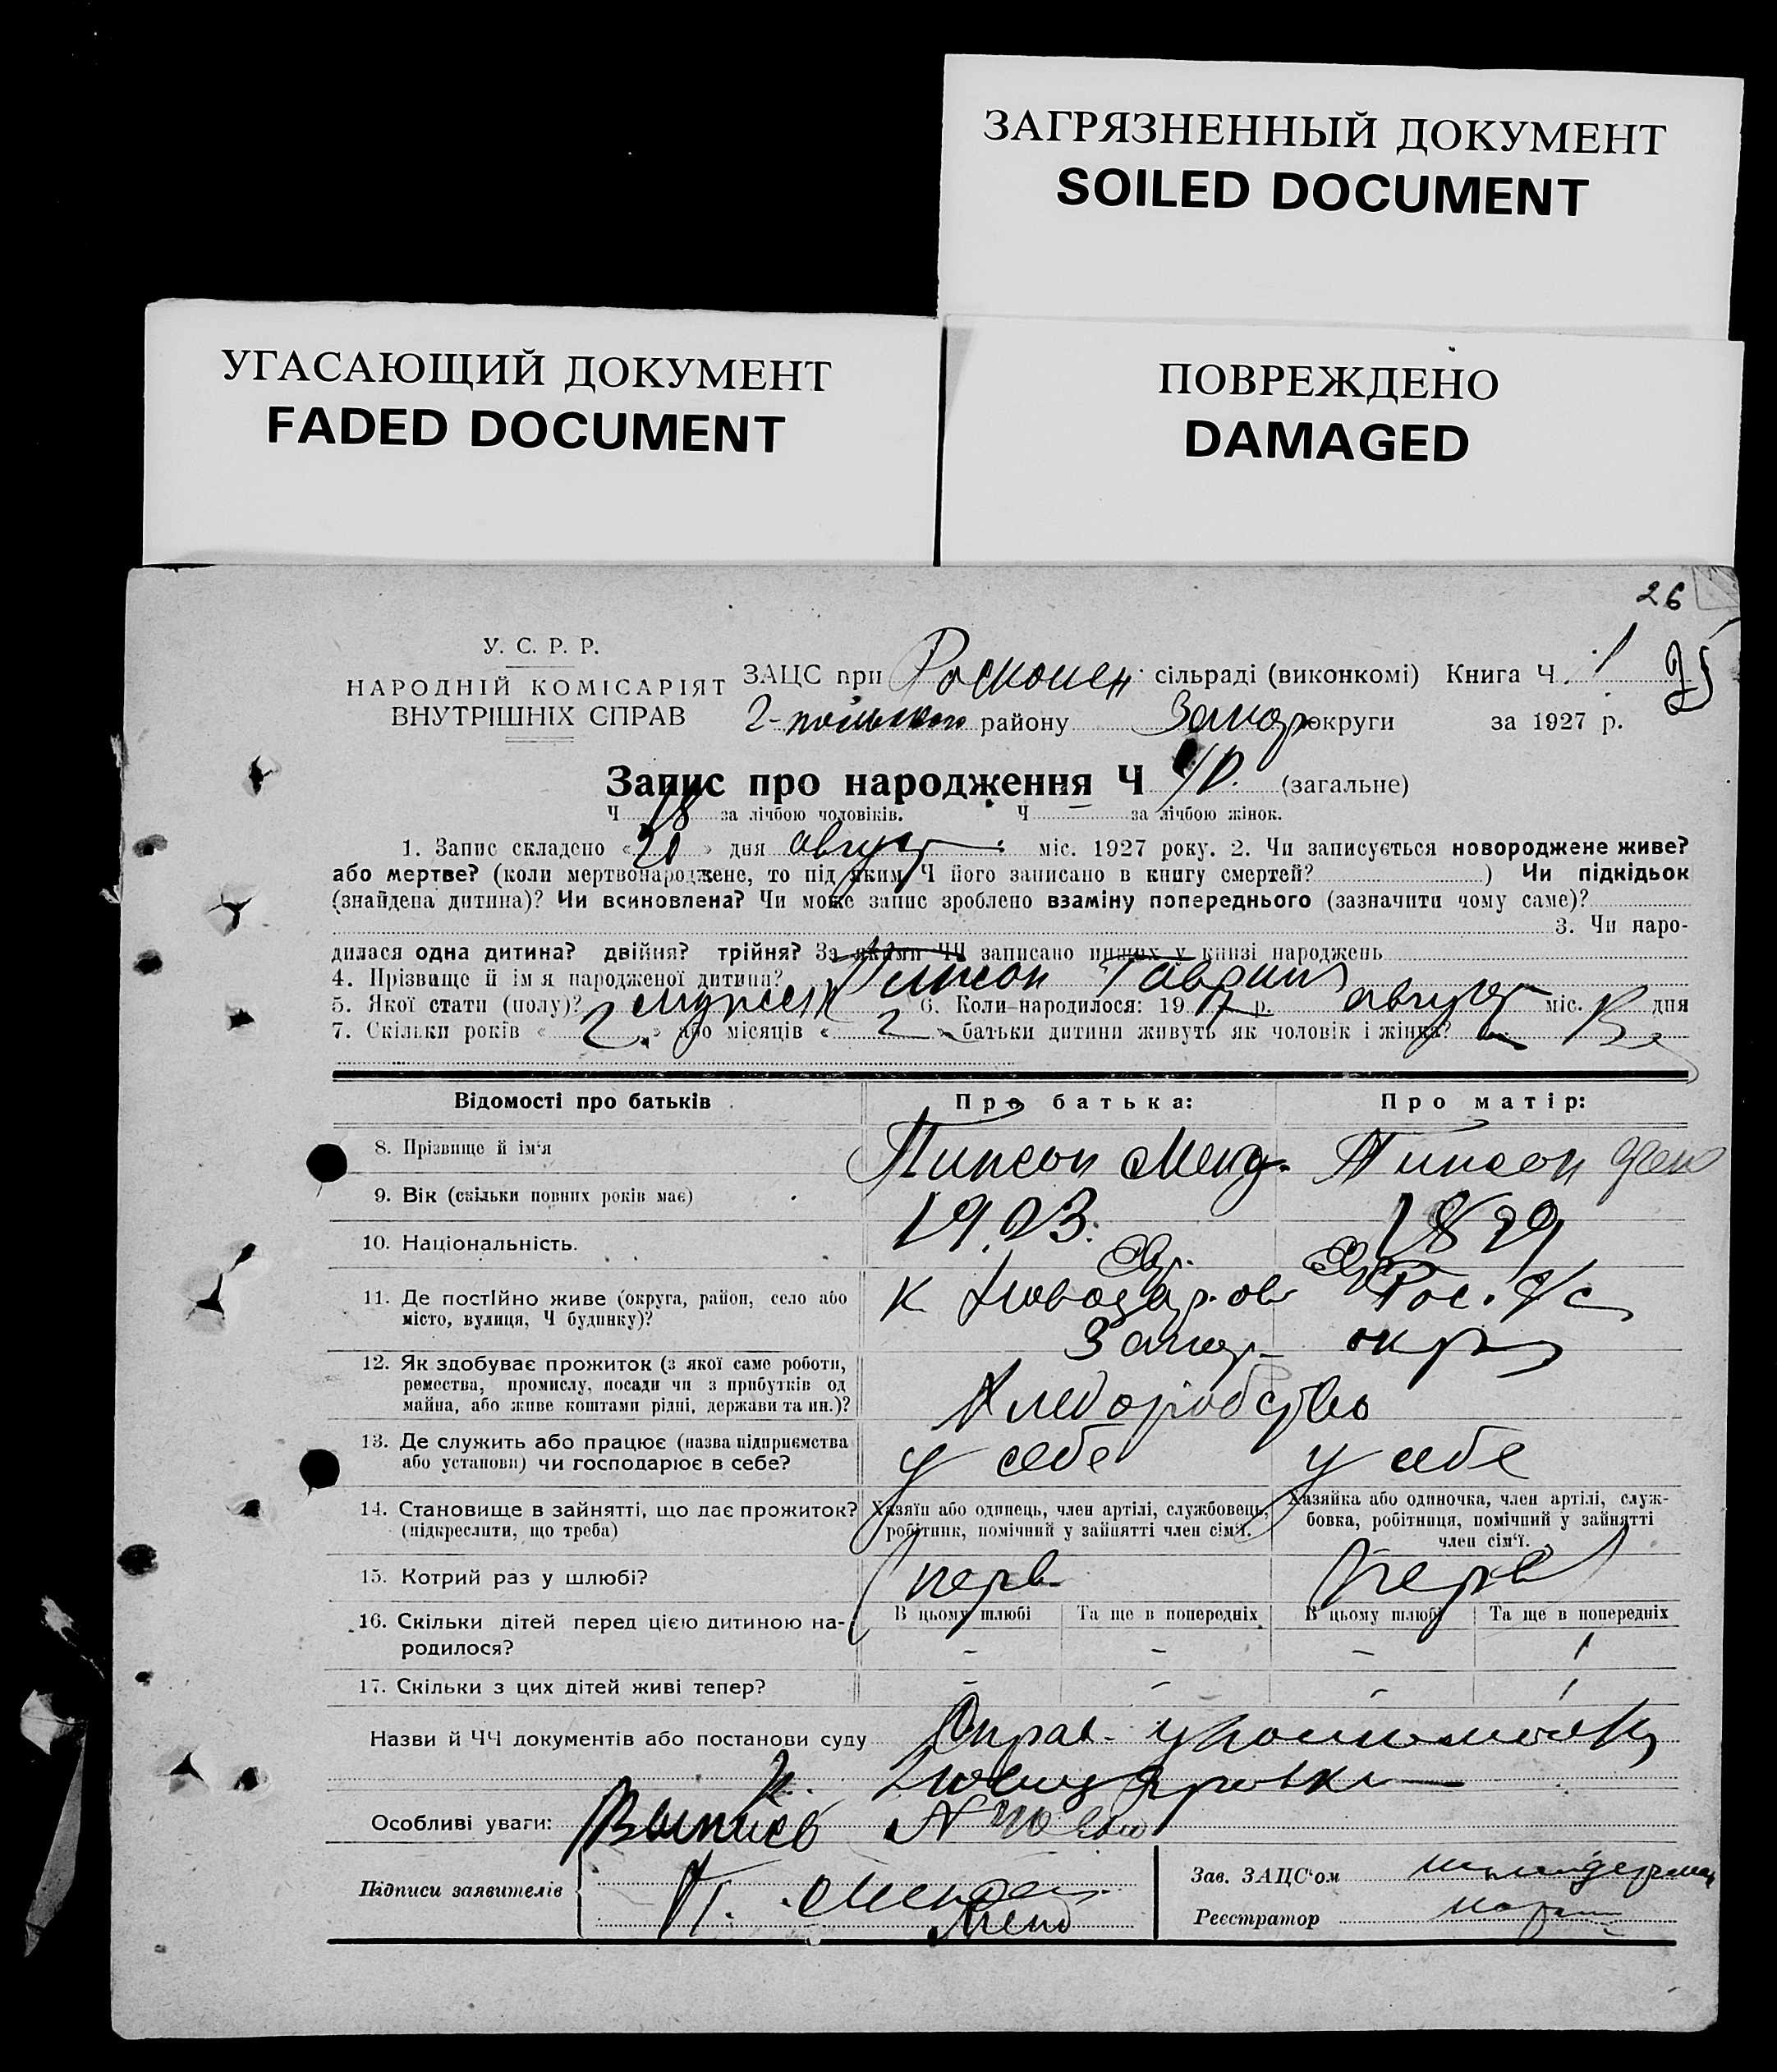 ЗАГРЯЗНЕННЫЙ ДОКУМЕНТ
SOILED DOCUMENT
УГАСАЮЩИЙ ДОКУМЕНТ
FADED DOCUMENT
ПОВРЕЖДЕНО
DAMAGED
26
25
У. С. Р. Р.
НАРОДНІЙ КОМІСАРІЯТ
ВНУТРІШНІХ СПРАВ
ЗАЦС при сільраді (виконкомі) Книга Ч. 1
району Запор округи за 1927 р.
Запис про народження Ч 40. (загальне)
Ч 18 за лічбою чоловіків. Ч — за лічбою жінок.
1. Запис складено «20» дня август міс. 1927 року. 2. Чи записується новороджене живе?
або мертве? (коли мертвонароджене, то під яким Ч його записано в книгу смертей? ) Чи підкідьок
(знайдена дитина)? Чи всиновлена? Чи може запис зроблено взаміну попереднього (зазначити чому саме)?
3. Чи наро-
дилася одна дитина? двійня? трійня? За якими ЧЧ записано инших у книзі народжень
4. Прізвище й ім'я народженої дитини? Пинсон Гавриил
5. Якої стати (полу)? мужеск 6. Коли народилося: 1927 р. август міс. дня
7. Скільки років «2» або місяців «2» батьки дитини живуть як чоловік і жінка?
Відомості про батьків
Про батька:
Про матір:
8. Прізвище й ім'я Пинсон Менд. Пинсон
9. Вік (скільки повних років має) 1903. 1899
10. Національність. Евр. Евр
11. Де постійно живе (округа, район, село або
місто, вулиця, Ч будинку)? к Рос. с/с
Запор. окр
12. Як здобуває прожиток (з якої саме роботи,
ремества, промислу, посади чи з прибутків од
майна, або живе коштами рідні, держави та ин.)? Хлеборобство
13. Де служить або працює (назва підприємства
або установи) чи господарює в себе? у себе у себе
14. Становище в зайнятті, що дає прожиток?
(підкреслити, що треба)
Хазяїн або одинець, член артілі, службовець,
робітник, помічний у зайнятті член сім'ї.
Хазяйка або одиночка, член артілі, служ-
бовка, робітниця, помічний у зайнятті
член сім'ї.
15. Котрий раз у шлюбі? перв перв
16. Скільки дітей перед цією дитиною на-
родилося?
В цьому шлюбі Та ще в попередніх В цьому шлюбі Та ще в попередніх
– – – 1
17. Скільки з цих дітей живі тепер? – – – 1
Назви й ЧЧ документів або постанови суду Справ.
к.
Особливі уваги: Выпись № 40
Підписи заявителів
Зав. ЗАЦС'ом
Реєстратор